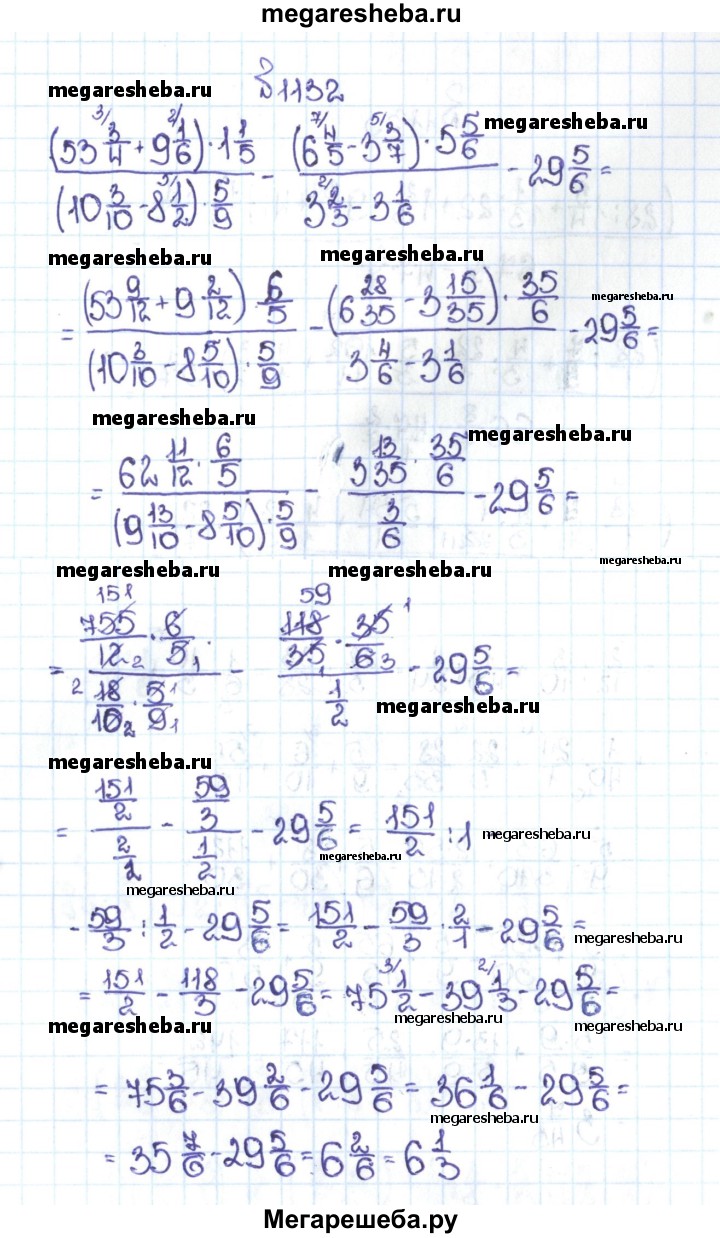 megaresheba.ru
megaresheba.ru №1132
(53 3/4 + 9 1/6) · 1 1/5 / (10 3/10 - 8 1/2) · 5/9 - (6 4/5 - 3 3/7) · 5 5/6 / 3 2/3 - 3 1/6 - 29 5/6 = megaresheba.ru
3/ 2/ 3/ 7/ 5/ 2/
megaresheba.ru megaresheba.ru
= (53 9/12 + 9 2/12) · 6/5 / (10 3/10 - 8 5/10) · 5/9 - (6 28/35 - 3 15/35) · 35/6 / 3 4/6 - 3 1/6 - 29 5/6 = megaresheba.ru
megaresheba.ru megaresheba.ru
= 62 11/12 · 6/5 / (9 13/10 - 8 5/10) · 5/9 - 3 13/35 · 35/6 / 3/6 - 29 5/6 =
megaresheba.ru
megaresheba.ru megaresheba.ru
151 59 1
= 755/12 · 6/5 / 18/10 · 5/9 - 118/35 · 35/6 / 1/2 - 29 5/6 =
2 1 1 3
2 1 2 1
megaresheba.ru
megaresheba.ru
= 151/2 / 2/2 - 59/3 / 1/2 - 29 5/6 = 151/2 : 1 megaresheba.ru
megaresheba.ru
megaresheba.ru
- 59/3 : 1/2 - 29 5/6 = 151/2 - 59/3 · 2/1 - 29 5/6 =
megaresheba.ru
= 151/2 - 118/3 - 29 5/6 = 75 1/2 - 39 1/3 - 29 5/6 =
3/ 2/
megaresheba.ru megaresheba.ru megaresheba.ru
= 75 3/6 - 39 2/6 - 29 5/6 = 36 1/6 - 29 5/6 =
megaresheba.ru
= 35 7/6 - 29 5/6 = 6 2/6 = 6 1/3
Мегарешеба.ру